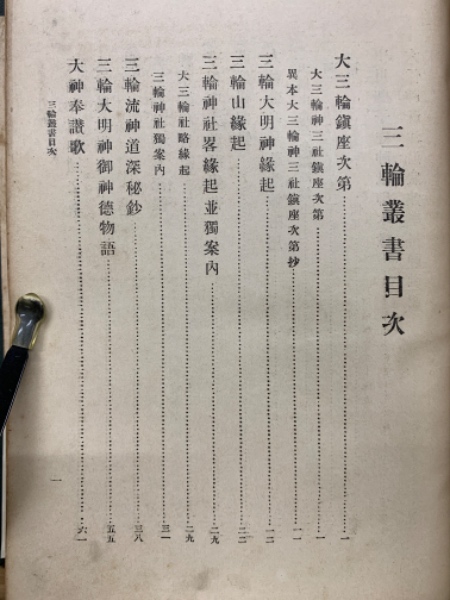 三輪叢書目次
大三輪鎮座次第……一
大三輪神三社鎮座次第……一
異本大三輪神三社鎮座次第抄……一一
三輪大明神緣起……一二
三輪山緣起……二二
三輪神社畧緣起並獨案內……二九
大三輪社略緣起……二九
三輪神社獨案內……三一
三輪流神道深秘鈔……三八
三輪大明神御神德物語……五五
大神奉讃歌……六一
三輪叢書目次
一